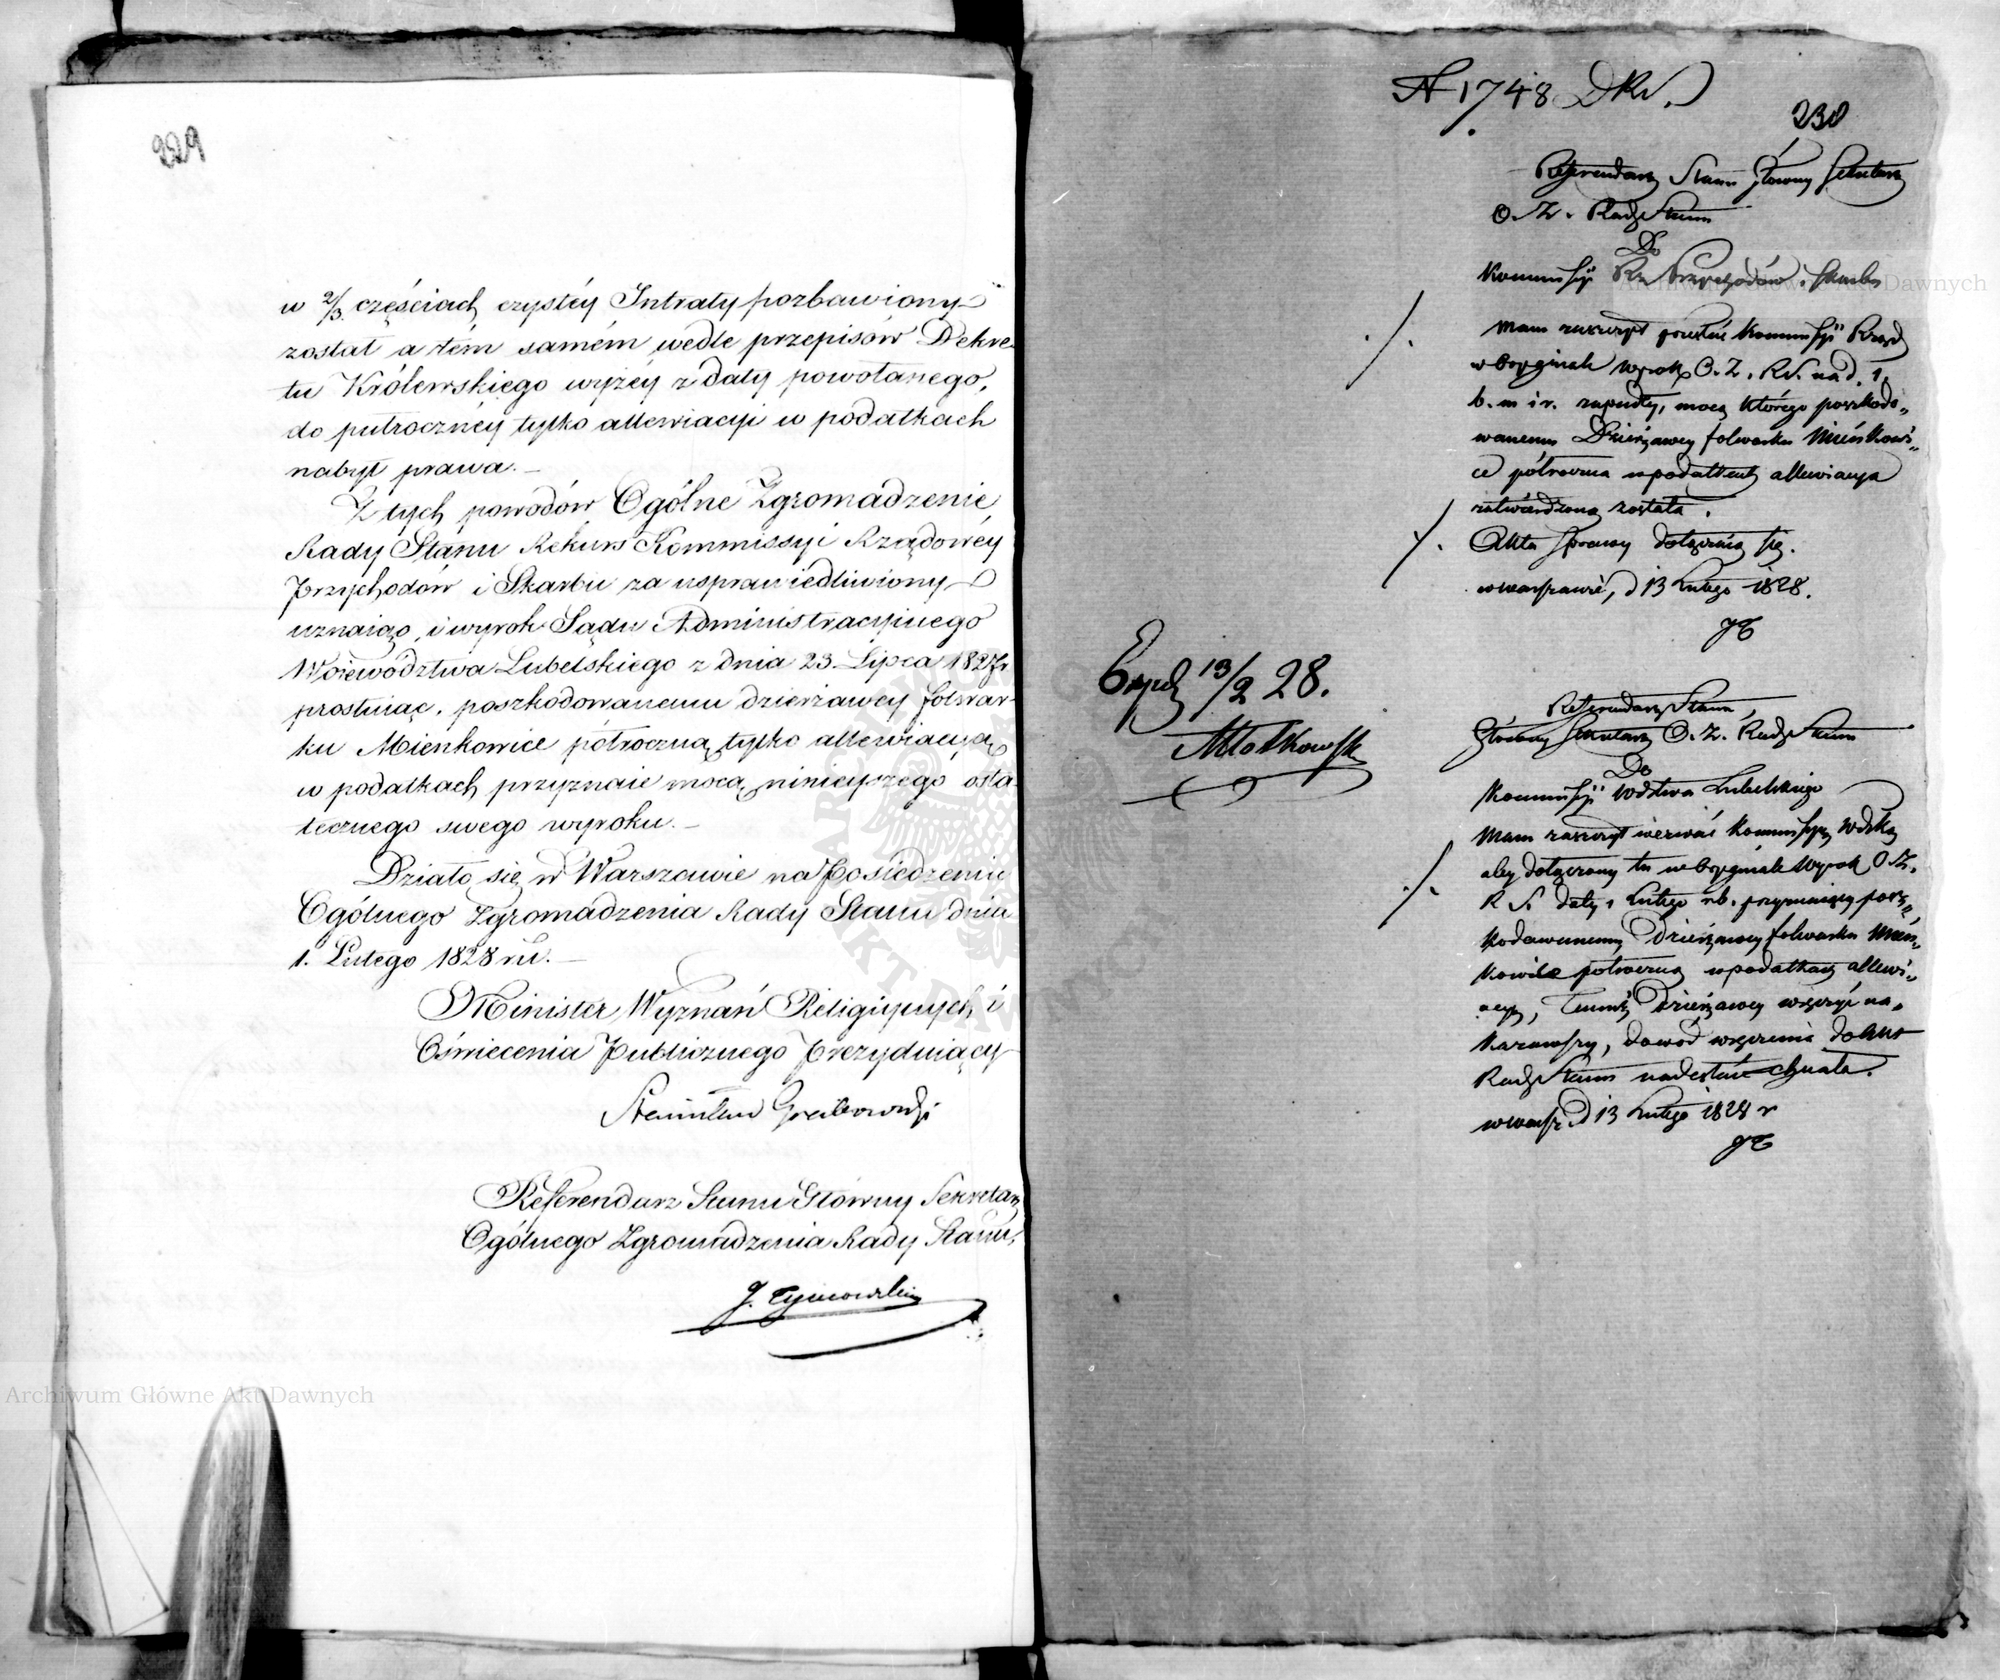 229
w 2/3 częściach czystéy Intraty pozbawiony
został a tém samém wedle przepisów Dekre-
tu Królewskiego wyżéy z daty powołanego,
do pułrocznéy tylko allewiacyi w podatkach
nabył prawa. –
Z tych powodów Ogólne Zgromadzenie
Rady Stanu Rekurs Kommissyi Rządowéy
Przychodów i Skarbu za usprawiedliwiony
uznaiąc, i wyrok Sądu Administracyinego
Województwa Lubelskiego z dnia 23. Lipca 1827 r.
prostuiąc, poszkodowanemu dzierżawcy folwar-
ku Mienkowice półroczną tylko allewiacyą
w podatkach przyznaie mocą ninieyszego osta-
tecznego swego wyroku. –
Działo się w Warszawie na Posiedzeniu
Ogólnego Zgromadzenia Rady Stanu dnia
1. Lutego 1828 ru. –
Minister Wyznań Religiynych i
Oświecenia Publicznego Prezyduiący
Stanisław Grabowski
Referendarz Stanu Główny Sekretarz
Ogólnego Zgromadzenia Rady Stanu,
J. Tymowski
N 1748 DRS.
230
Referendarz Stanu Główny Sekretarz
O. Z. Rady Stanu
Do
Kommissyi Rz Przychodów i Skarbu
Mam zaszczyt przesłać Kommissyi Rząd
w Oryginale wyrok O. Z. R S. na d. 1.
b. m i r. zapadły, mocą którego poszkodo„
wanemu Dzierżawcy folwarku Mieńkowi„
ce półroczna w podatkach allewiacya
zatwierdzoną została.
Akta sprawy dołączaią się.
w Warszawie, d 13 Lutego 1828.
JT
Exped 13/2 28.
Młotkowski
Referendarz Stanu
Główny Sekretarz O. Z. Rady Stanu
Do
Kommissyi Wdztwa Lubelskiego
Mam zaszczyt wezwać Kommissyą Wdzką
aby dołączony tu w Oryginale Wyrok O Z.
R S. daty 1 Lutego rb. przyznaiący posz„
kodowanemu Dzierżawcy folwarku Mień„
kowice półroczną w podatkach allewi„
acyą, Temuż Dzierżawcy wręczyć na„
kazawszy, dowód wręczenia do Akt
Rady Stanu nadesłać chciała.
w Warsz. d 13 Lutego 1828 r
JT
Archiwum Główne Akt Dawnych